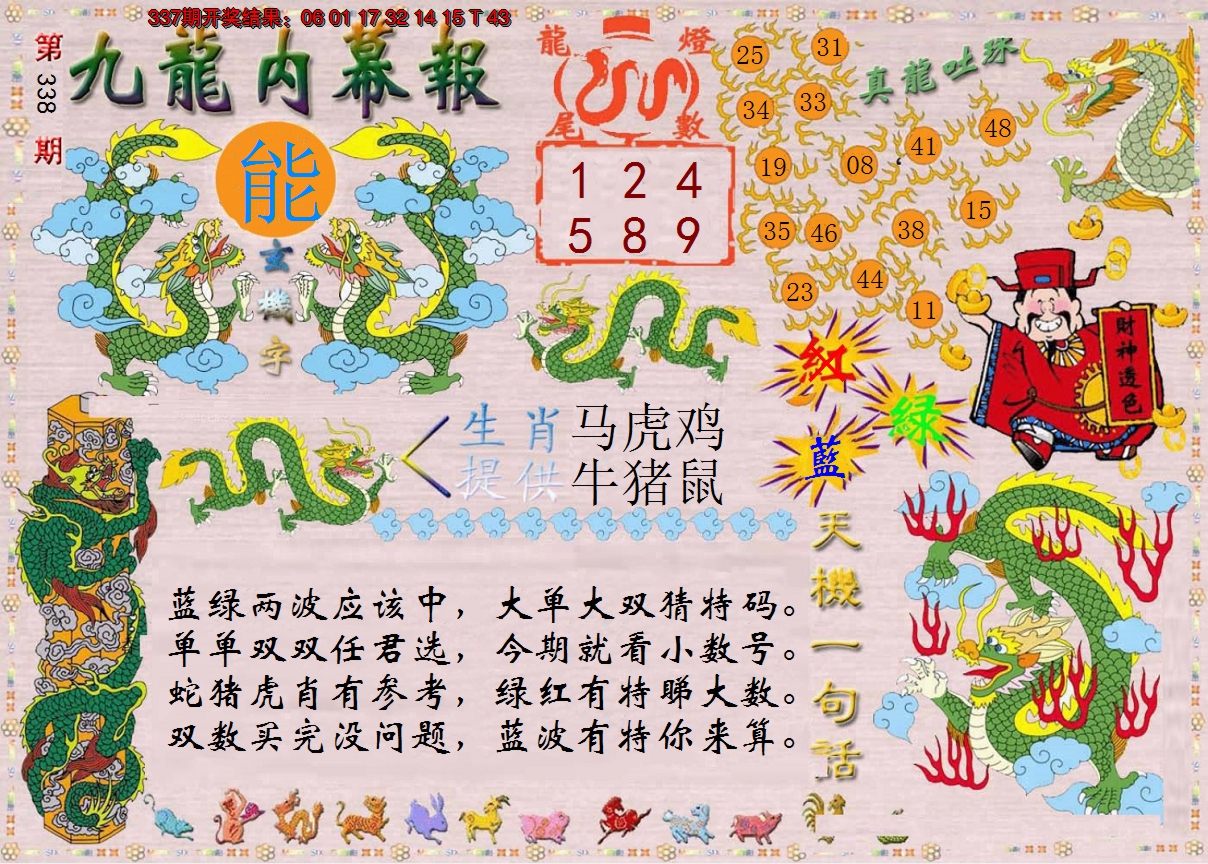 337期开奖结果：06 01 17 32 14 15 T 43
第338期
九龍内幕報
能
玄機字
龍燈
尾數
1 2 4
5 8 9
真龍吐珠
25 31
34 33
19 08 41 48
35 46 38 15
23 44 11
財神透色
紅
绿
藍
生肖提供
马虎鸡
牛猪鼠
天機一句話
蓝绿两波应该中，大单大双猜特码。
单单双双任君选，今期就看小数号。
蛇猪虎肖有参考，绿红有特睇大数。
双数买完没问题，蓝波有特你来算。